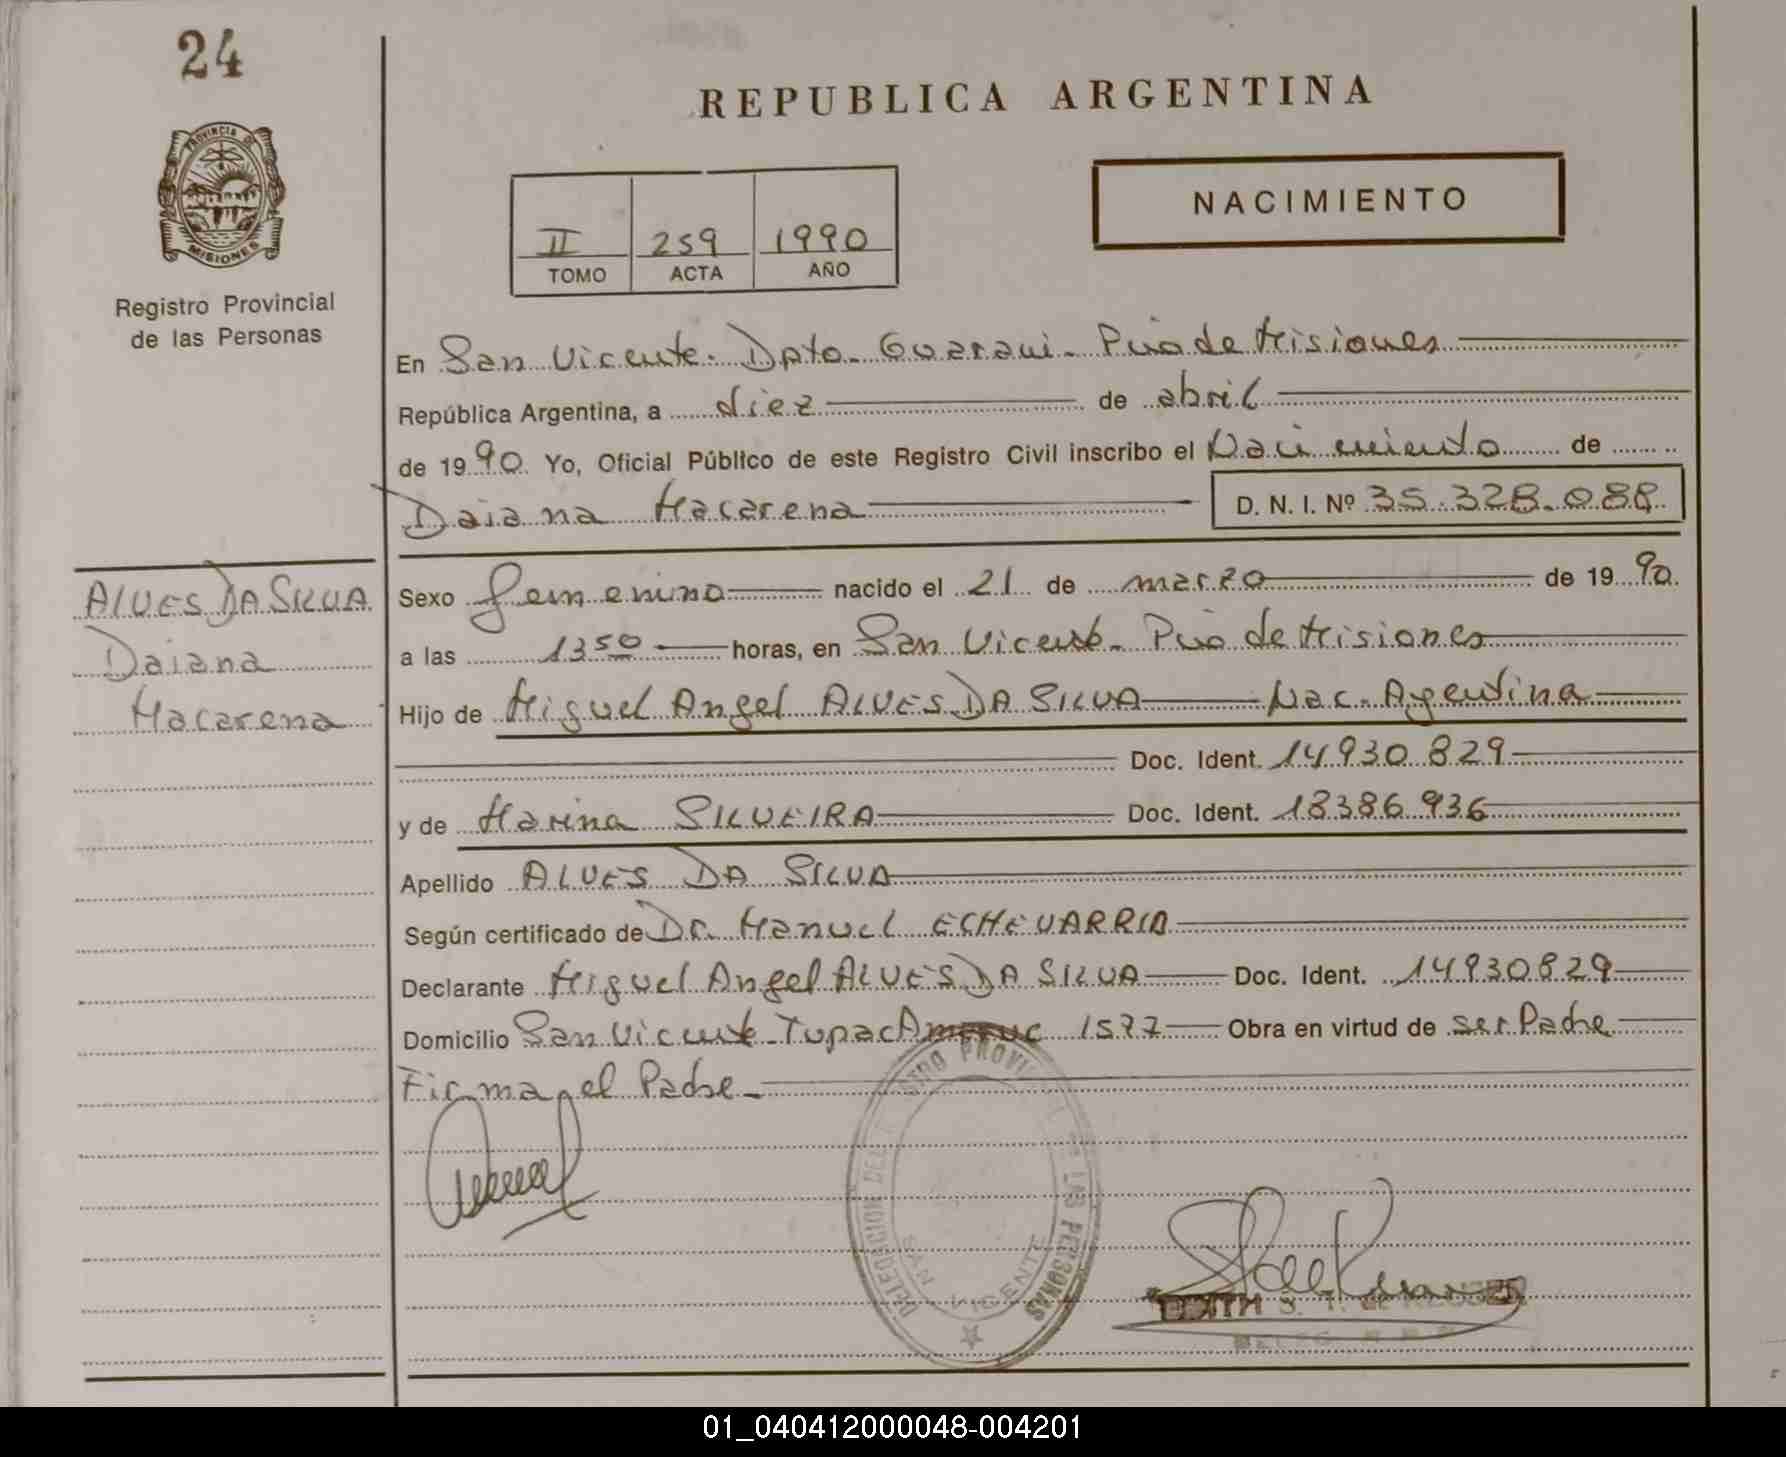 24
PROVINCIA DE
MISIONES
Registro Provincial
de las Personas
REPUBLICA ARGENTINA
II 259 1990
TOMO ACTA AÑO
NACIMIENTO
En San Vicente. Dpto. Guarani. Pcia de Misiones
República Argentina, a diez de abril
de 1990. Yo, Oficial Público de este Registro Civil inscribo el Nacimiento de
Daiana Macarena D. N. I. Nº 35.328.088
ALVES DA SILVA
Daiana
Macarena
Sexo femenino nacido el 21 de marzo de 1990.
a las 13 50 horas, en San Vicente. Pcia de Misiones
Hijo de Miguel Angel ALVES DA SILVA Nac. Argentina
Doc. Ident. 14930829
y de Marina SILVEIRA Doc. Ident. 18386936
Apellido ALVES DA SILVA
Según certificado de Dr. Manuel ECHEVARRIA
Declarante Miguel Angel ALVES DA SILVA Doc. Ident. 14930829
Domicilio San Vicente. Tupac Amaruc 1577 Obra en virtud de ser Padre
Firma el Padre.
DELEGACION DEL REGISTRO PROVINCIAL DE LAS PERSONAS
SAN VICENTE
EDITH S. T. de
01_040412000048-004201